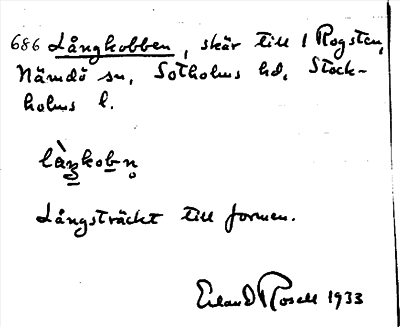 686 Långkobben, skär till 1 Rogsten,
Nämdö sn, Sotholms hd, Stock-
holms l.
làŋkobn̥
Långsträckt till formen.
Erland Rosell 1933